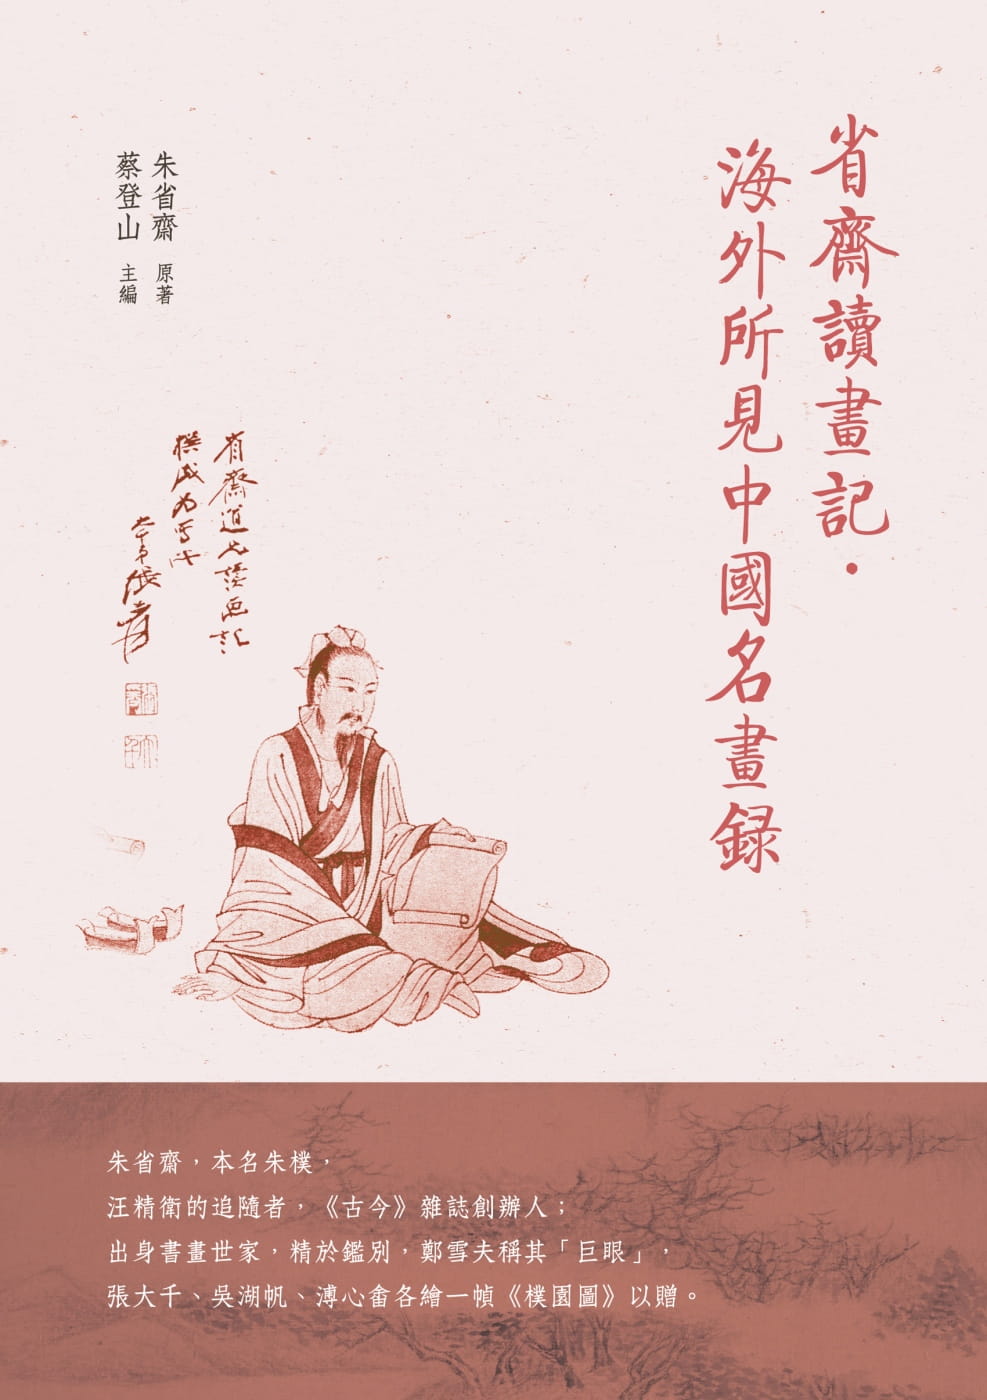 省齋讀畫記·
海外所見中國名畫錄
朱省齋 原著
蔡登山 主編
省齋道兄讀画記
撰成为写此
大千弟張爰
朱省齋，本名朱樸，
汪精衛的追隨者，《古今》雜誌創辦人；
出身書畫世家，精於鑑別，鄭雪夫稱其「巨眼」，
張大千、吳湖帆、溥心畬各繪一幀《樸園圖》以贈。